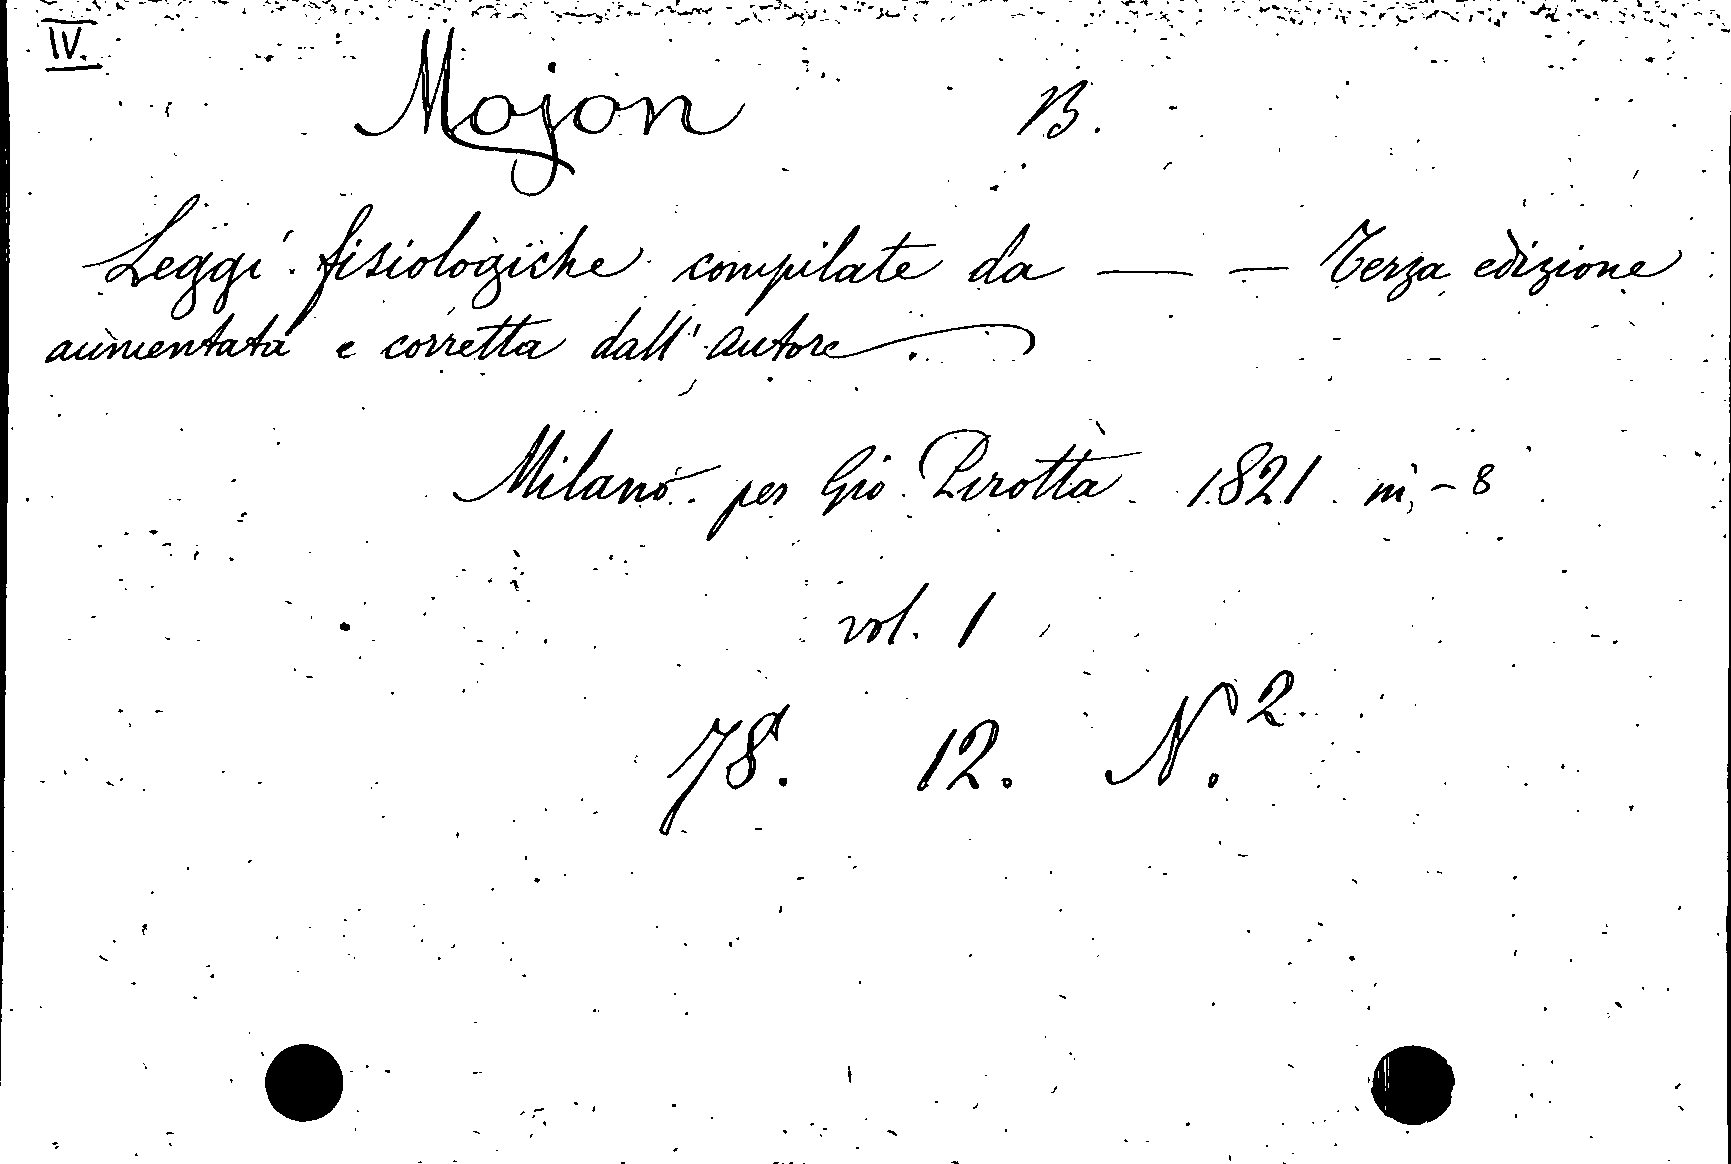 IV.
Mojon B.
Leggi fisiologiche compilate da — — Terza edizione
aumentata e corretta dall'autore.
Milano. per Gio. Pirotta. 1821. in-8
vol. 1
78. 12. N.2